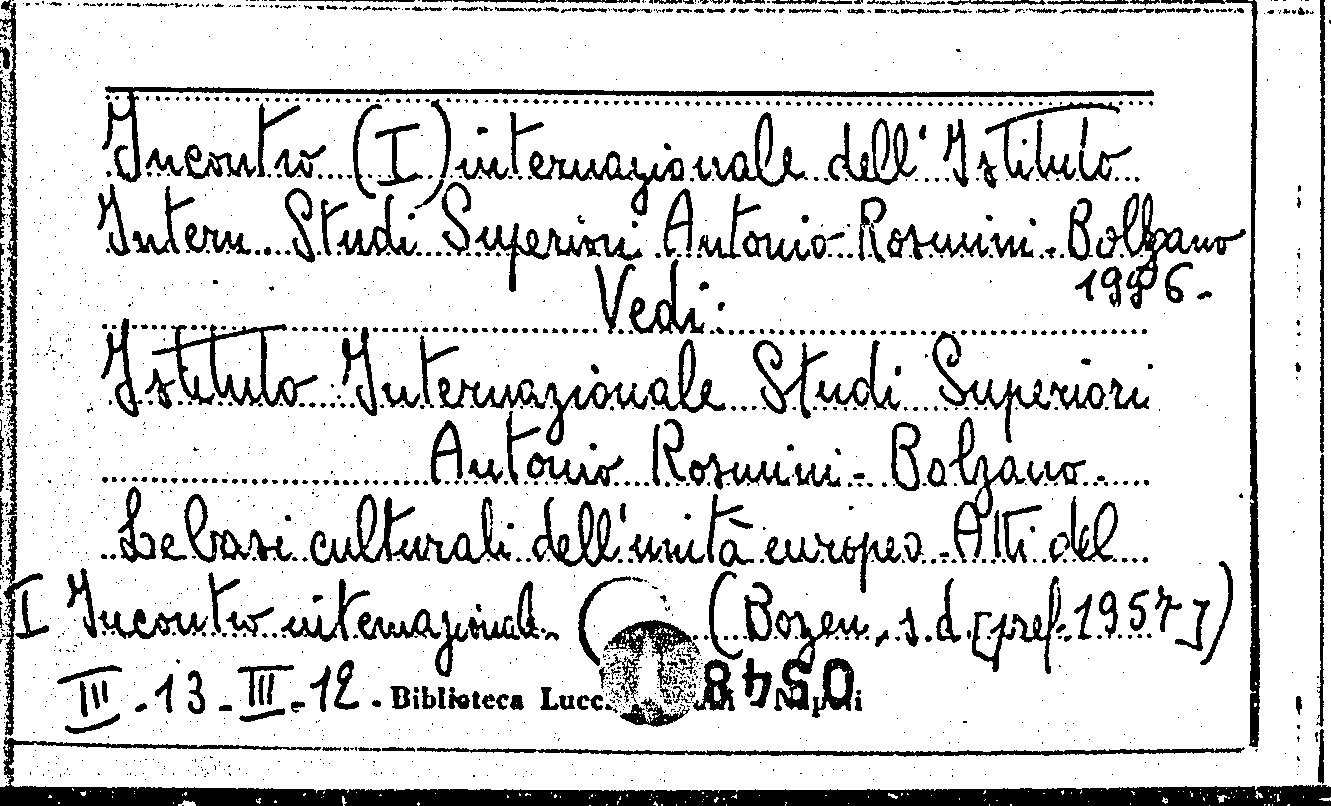 Incontro (I) internazionale dell'Istituto
Intern. Studi Superiori Antonio Rosmini - Bolzano
1956.
Vedi:
Istituto Internazionale Studi Superiori
Antonio Rosmini - Bolzano.
Le basi culturali dell'unità europea - Atti del
I Incontro internazionale. (Bozen, s.d. [pref. 1957])
III - 13 - III - 12. Biblioteca Lucc Napoli
0548